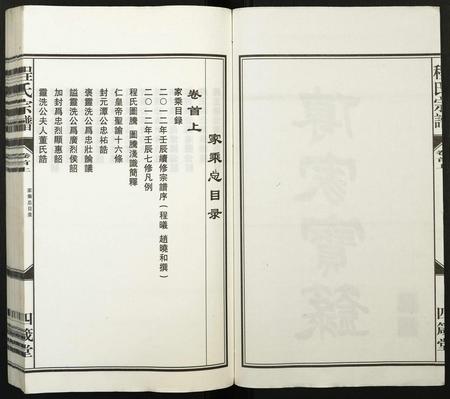 程氏宗譜
四箴堂
家乘总目录
卷首上
家乘目録
二〇一二年壬辰續修宗譜序（程曦 趙曉和撰）
二〇一二年壬辰七修凡例
程氏圖騰 圖騰淺識簡釋
仁皇帝聖諭十六條
封元潭公忠祐誥
褒靈洗公爲忠壯論議
謚靈洗公爲廣烈侯詔
加封爲忠烈顯惠詔
靈洗公夫人董氏誥
程氏宗譜
卷首上
家乘总目录
四箴堂